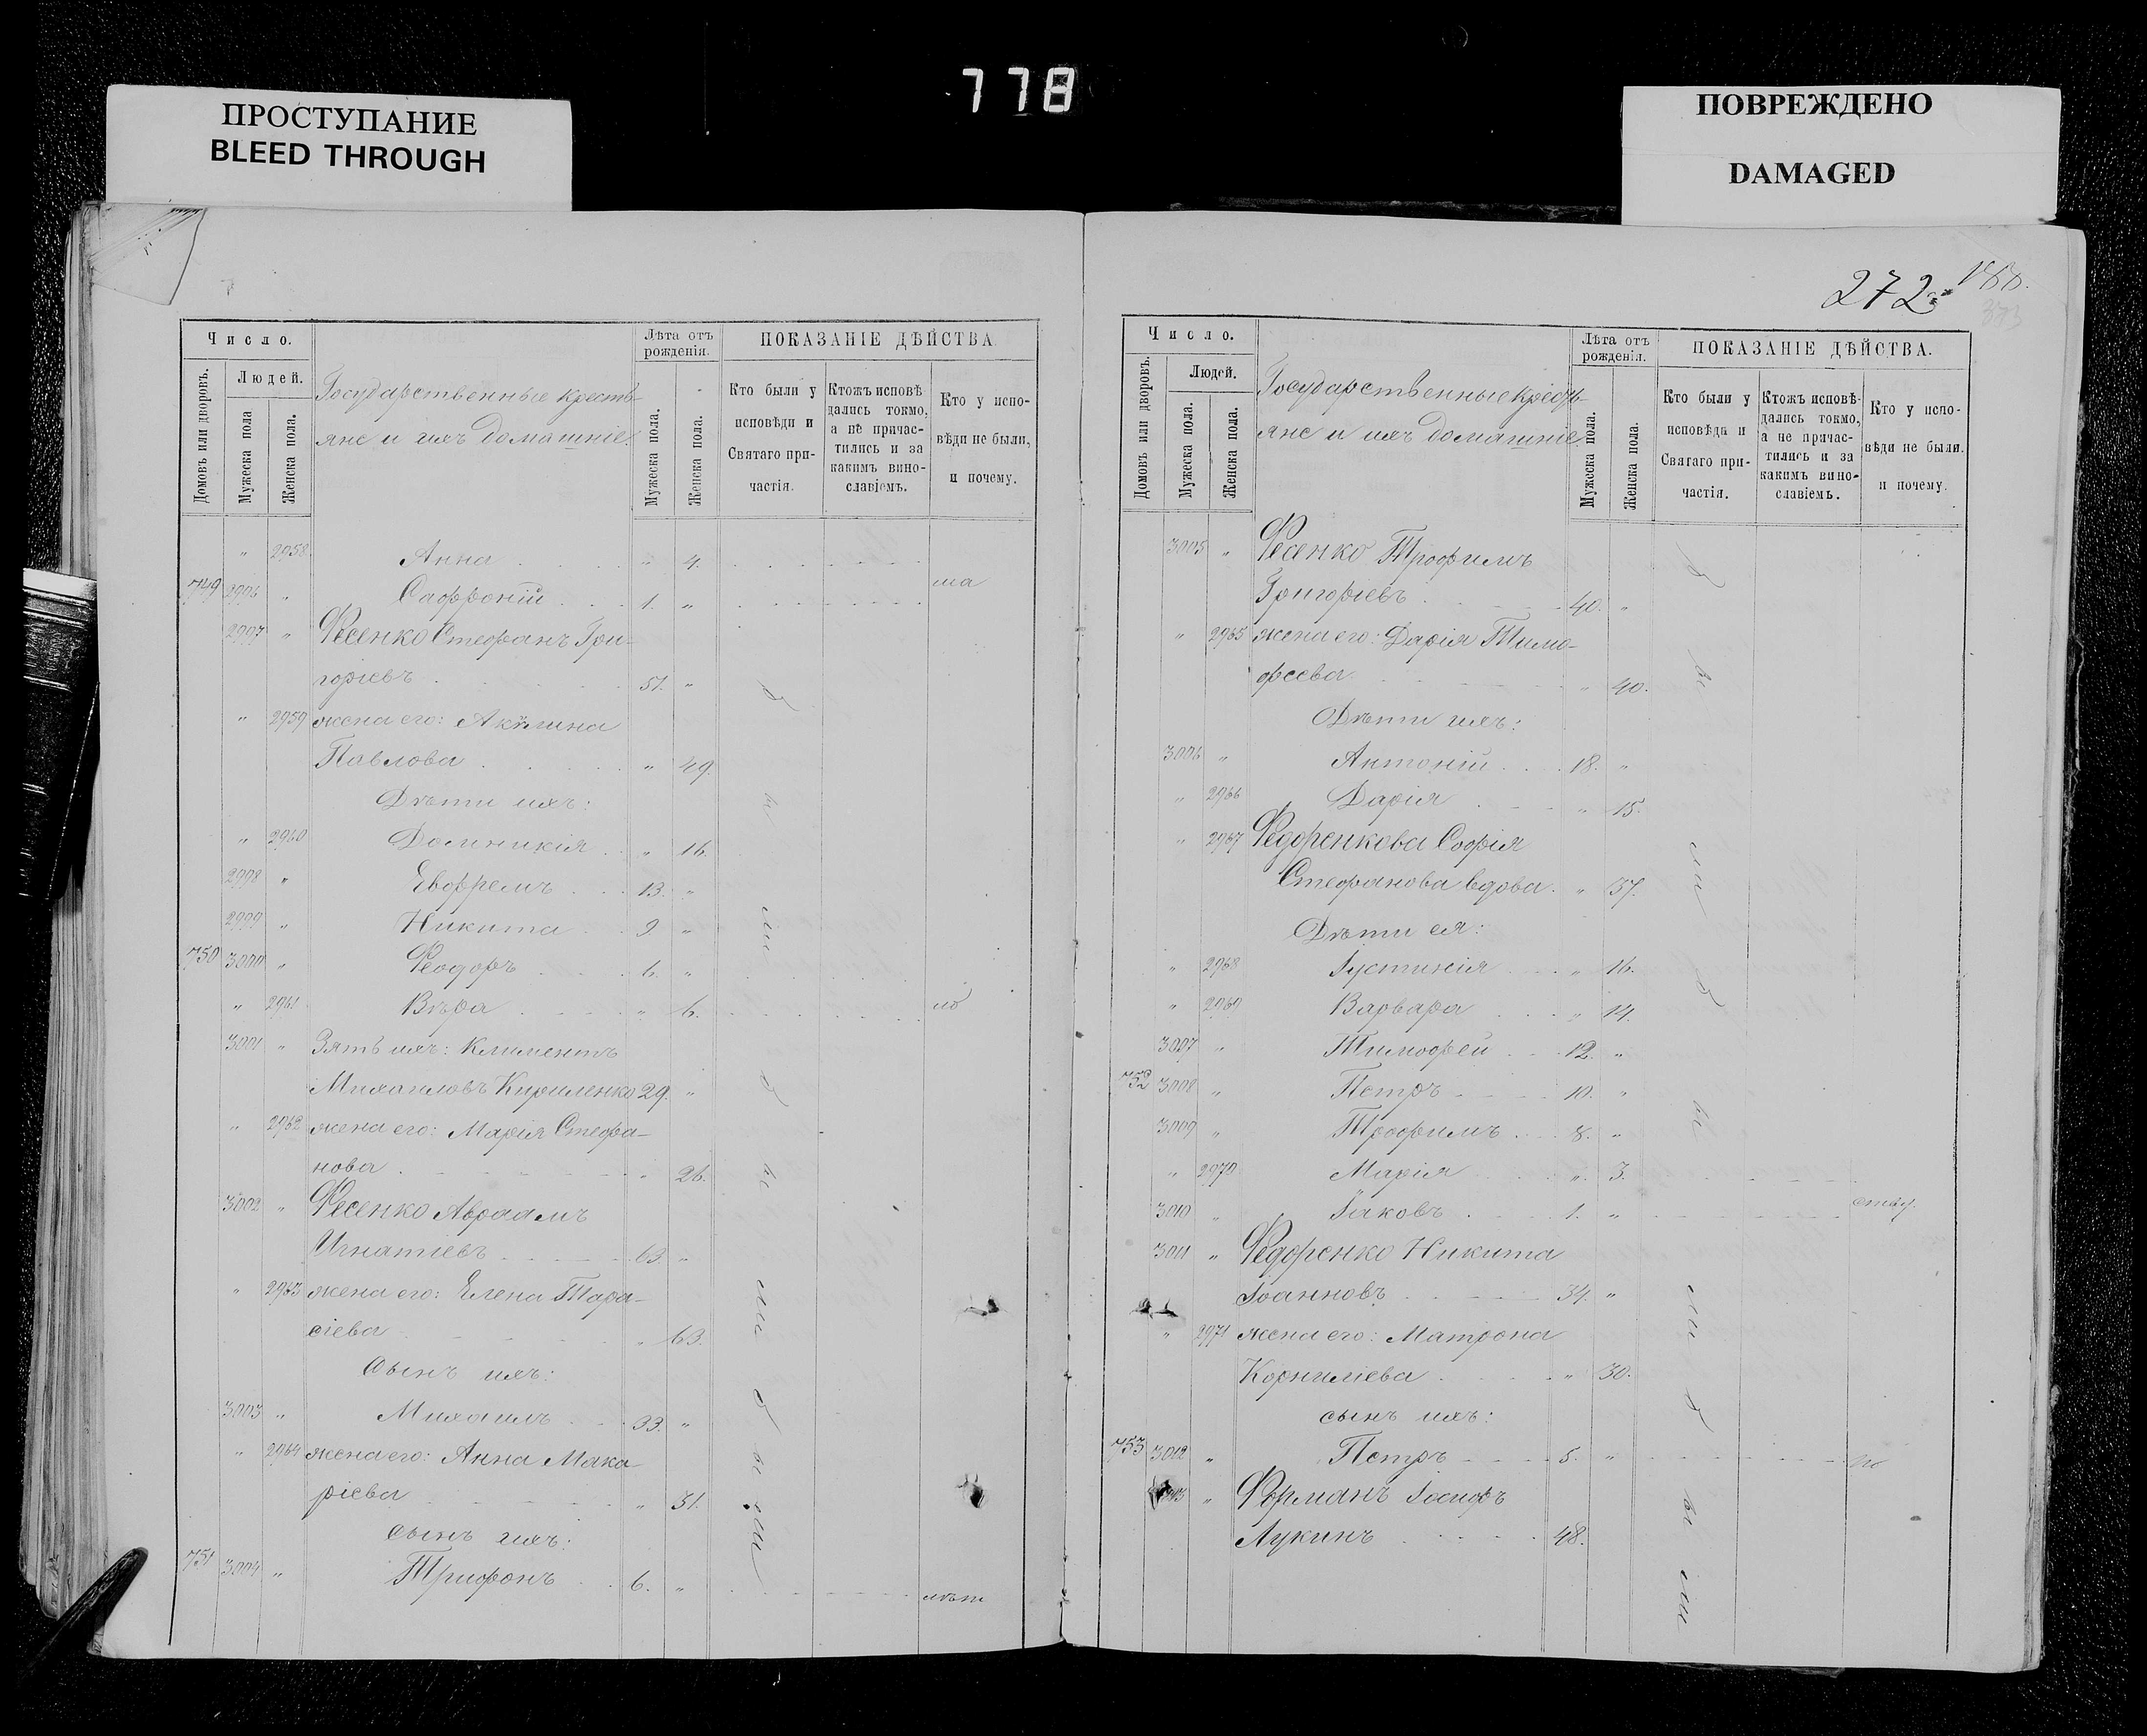 778
ПРОСТУПАНИЕ
BLEED THROUGH
ПОВРЕЖДЕНО
DAMAGED
Число.
Домовъ или дворовъ.
Людей.
Мужеска пола
Женска пола.
Государственные кресть-
яне и ихъ домашніе.
Лѣта отъ рожденія.
Мужеска пола.
Женска пола.
ПОКАЗАНІЕ ДѢЙСТВА.
Кто были у исповѣди и Святаго при-частія.
Ктожъ исповѣ дались токмо, а не причас-тились и за какимъ вино-славіемъ.
Кто у испо-вѣди не были, и почему.
" 2958 Анна " 4.
749 2996 " Саффоній 1. " ма
2997 " Фесенко Стефанъ Гри-
горіевъ 51. "
" 2959 жена его: Акѵлина
Павлова " 49.
Дѣти ихъ:
" 2960 Домникія " 16.
2998 " Евфремъ 13. "
2999 " Никита 9 "
750 3000 " Ѳеодоръ 6. "
" 2961 Вѣра " 6. ло
3001 " Зять ихъ: Климентъ
Михаиловъ Кириленко 29. "
" 2962 жена его: Марія Стефа-
нова " 26.
3002 " Фесенко Авраамъ
Игнатіевъ 63. "
" 2963 жена его: Елена Тара-
сіева " 63.
Сынъ ихъ:
3003 " Михаилъ 33. "
" 2964 жена его: Анна Мака-
ріева " 31.
сынъ ихъ:
751 3004 " Трифонъ 6. " лѣт
были
были
были
272.
Число.
Домовъ или дворовъ.
Людей.
Мужеска пола.
Женска пола.
Государственные кресть-
яне и ихъ домашніе.
Лѣта отъ рожденія.
Мужеска пола.
Женска пола.
ПОКАЗАНІЕ ДѢЙСТВА.
Кто были у исповѣди и Святаго при-частія.
Ктожъ исповѣ-дались токмо, а не причас-тились и за какимъ вино-славіемъ.
Кто у испо-вѣди не были. и почему.
3005 " Фесенко Трофимъ
Григоріевъ 40. "
" 2965 жена его: Дарія Тимо-
феева " 40.
Дѣти ихъ:
3006 " Антоній 18. "
" 2966 Дарія " 15.
" 2967 Федоренкова Софія
Стефанова вдова. " 57.
Дѣти ея:
" 2968 Іустинія " 16.
" 2969 Варвара " 14.
3007 " Тимофей 12. "
752 3008 " Петръ 10. "
3009 " Трофимъ 8. "
" 2970 Марія " 3.
3010 " Іаковъ 1. "
3011 " Федоренко Никита
Іоанновъ 34. "
" 2971 жена его: Матрона
Корниліева " 30.
сынъ ихъ:
753 3012 " Петръ 5. " по
" Форманъ Іосифъ
Лукинъ 48.
были
были
были